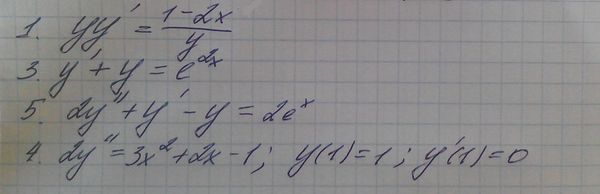 1. yy' = (1-2x)/y
3. y' + y = e^2x
5. 2y'' + y' - y = 2e^x
4. 2y'' = 3x² + 2x - 1; y(1) = 1; y'(1) = 0